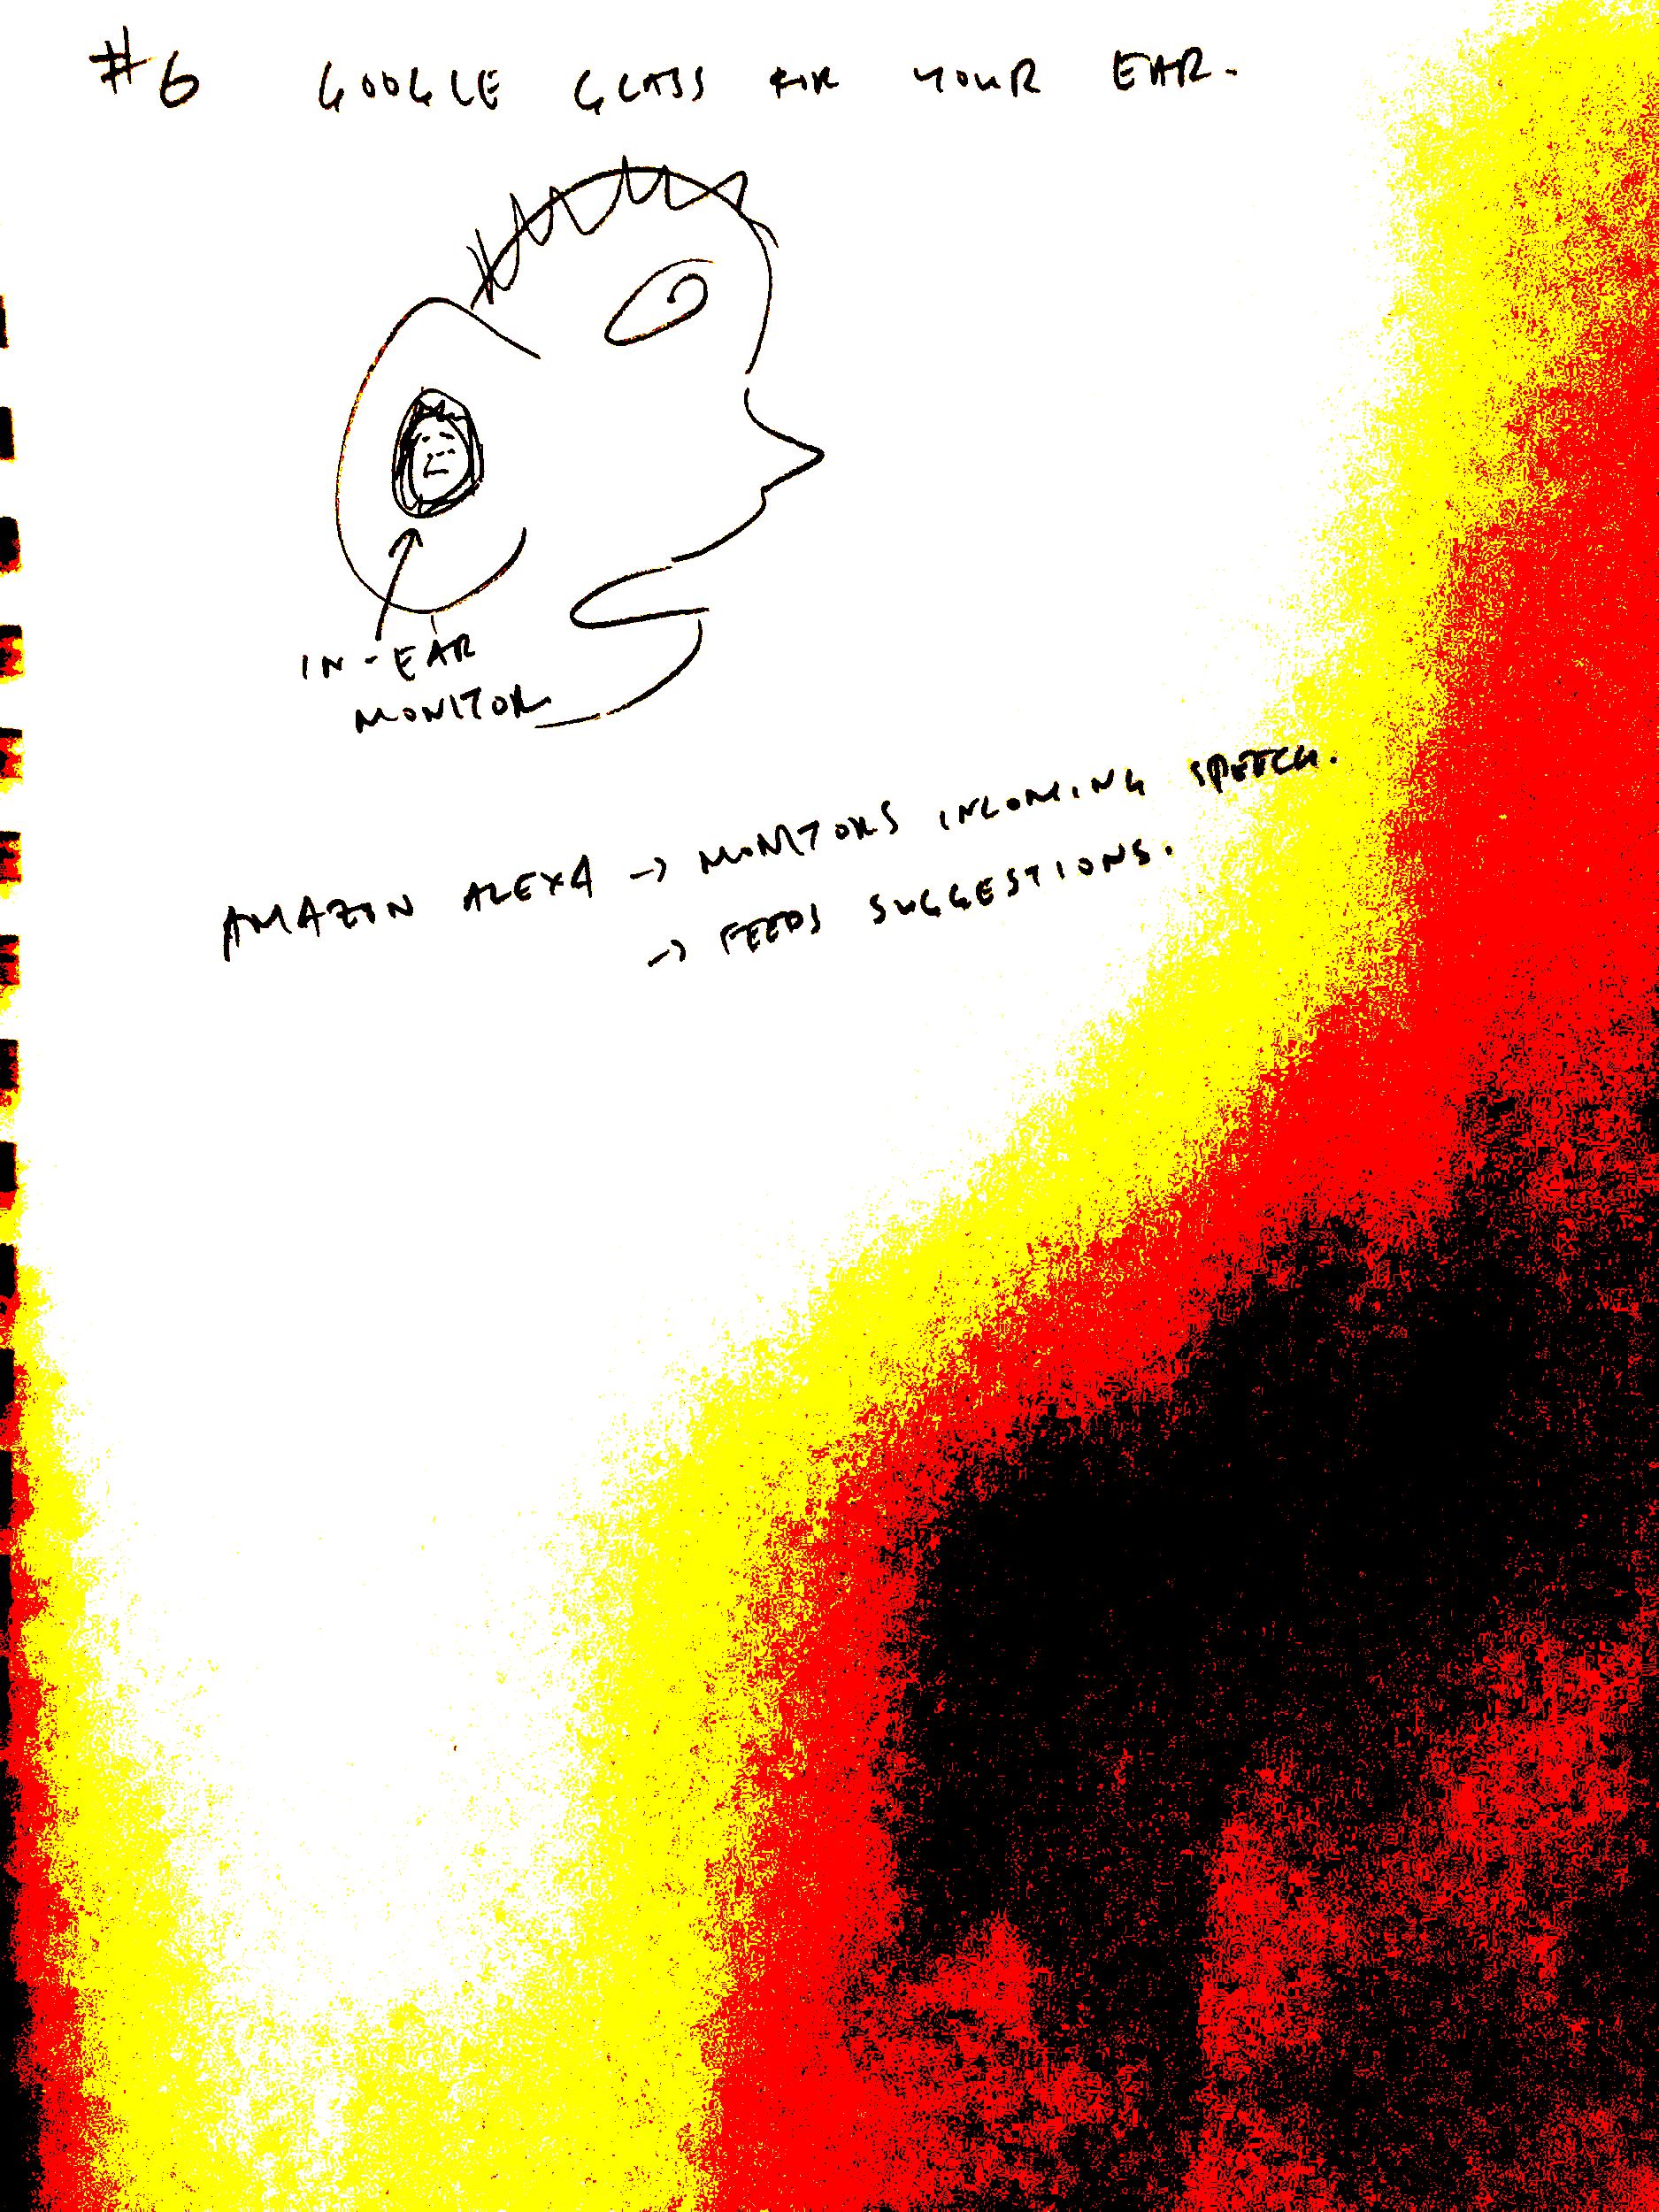 #6 GOOGLE GLASS FOR YOUR EAR.
IN-EAR
MONITOR
AMAZON ALEXA → MONITORS INCOMING SPEECH.
→ FEEDS SUGGESTIONS.